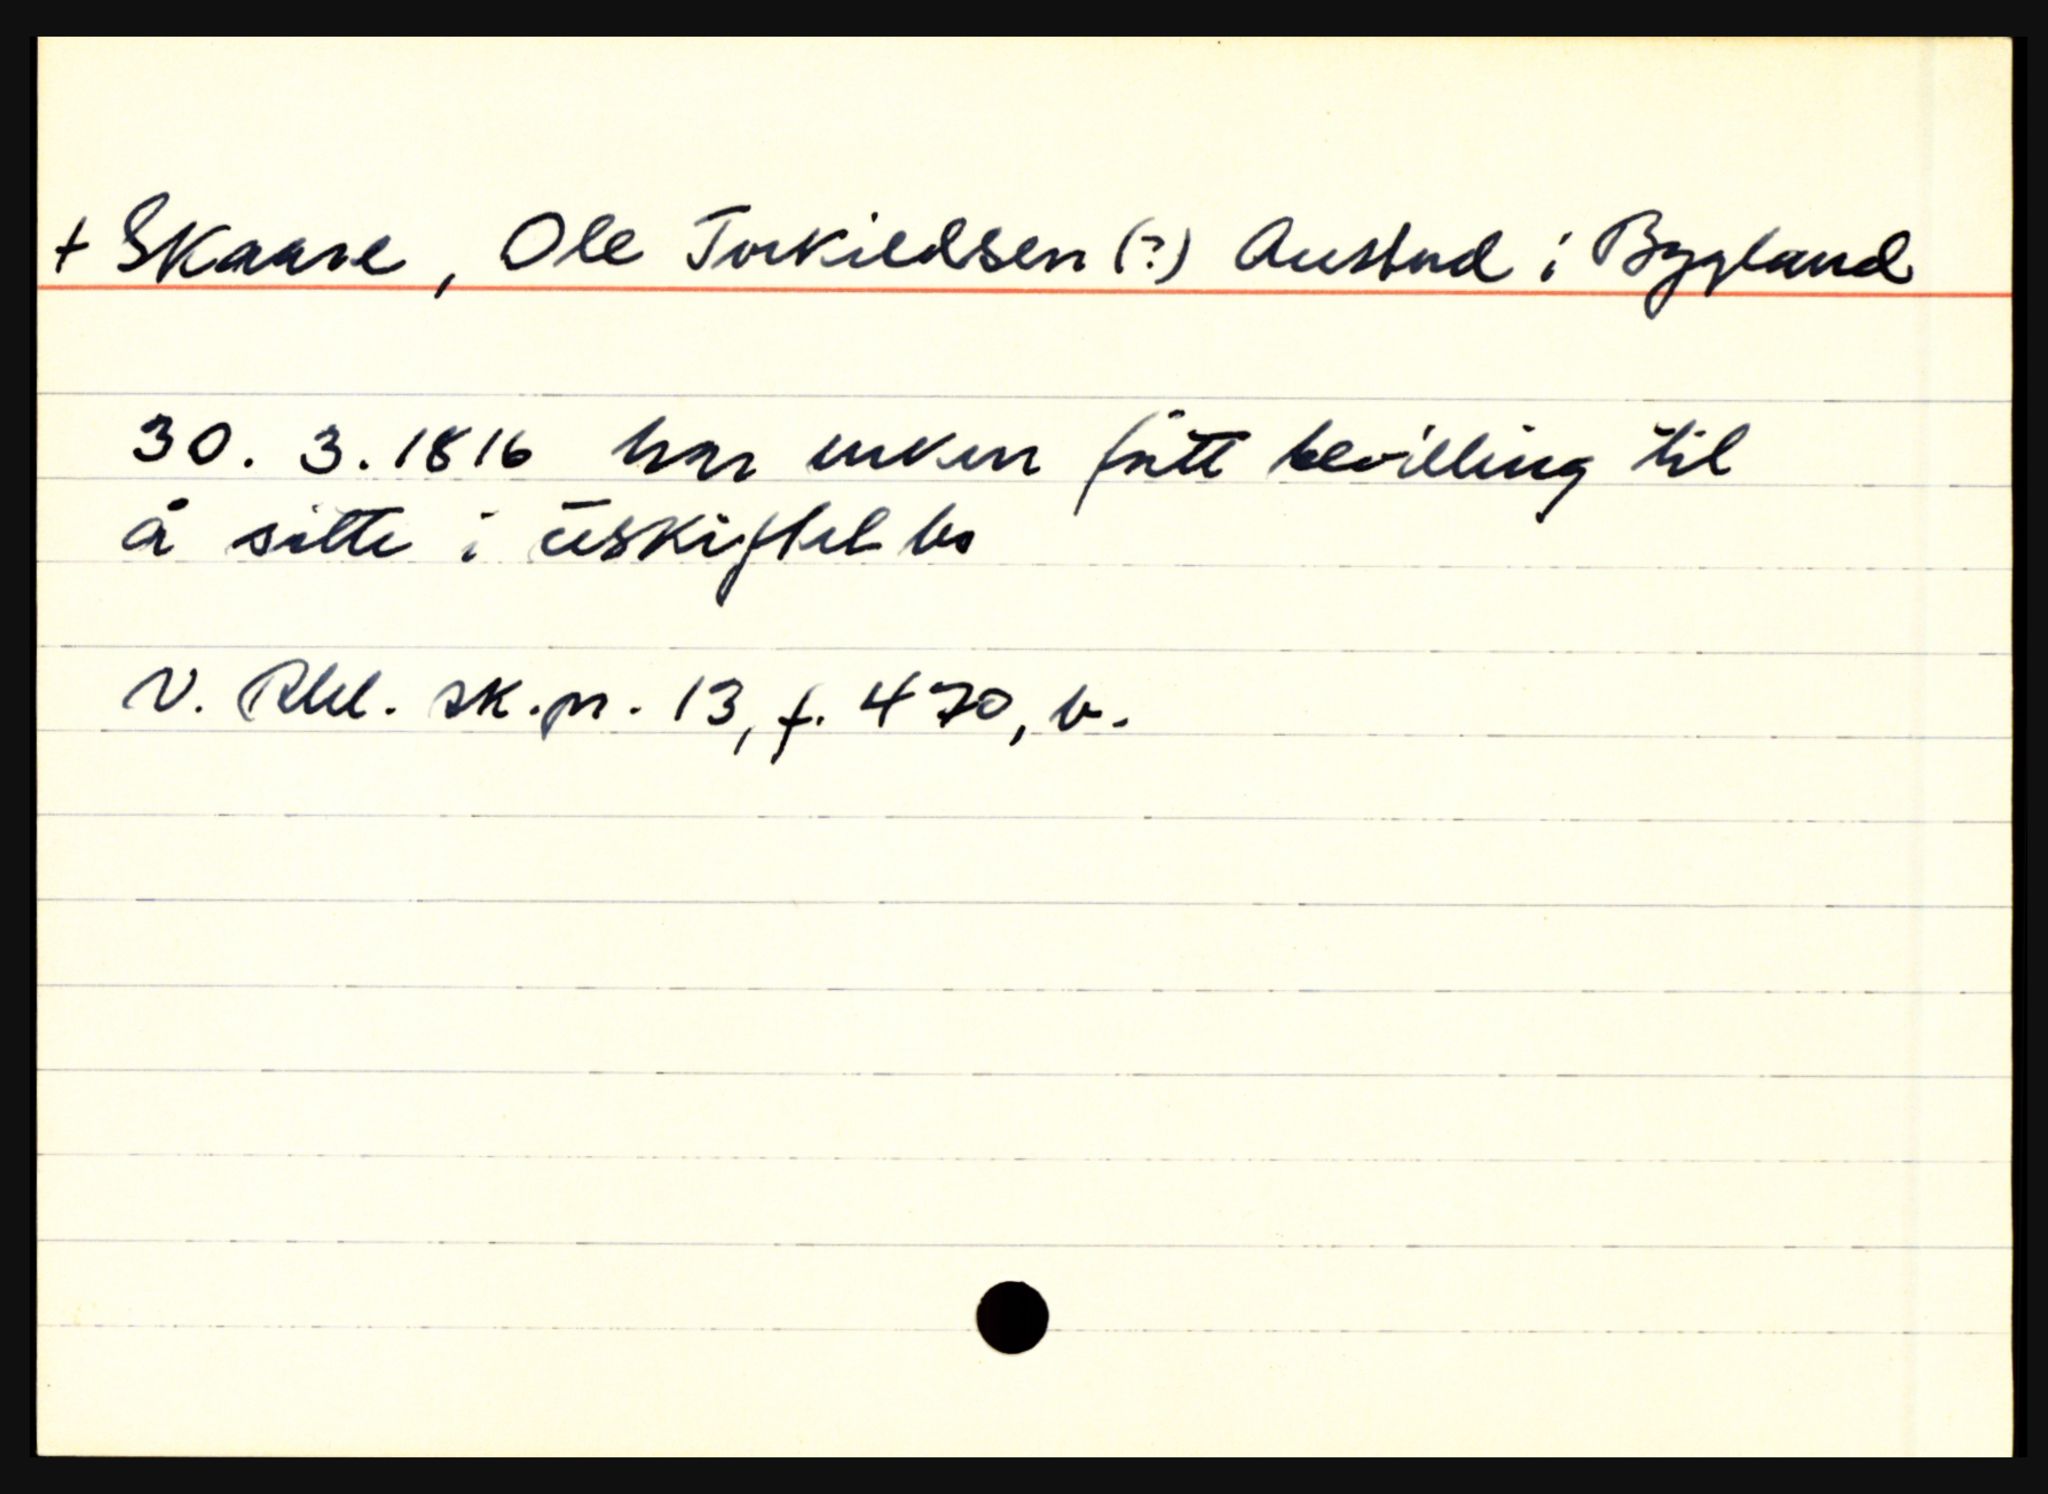 + Skaare, Ole Torkildsen (?) Austad i Bygland
30. 3. 1816 har enken fått bevilling til
å sitte i uskiftet bo
V. Rbl. sk.pr. 13, f. 470, b.